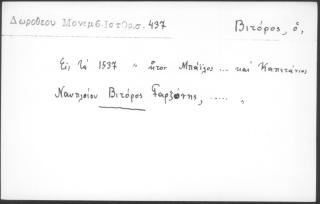 Δωροθέου Μονεμβ. Ιστορ. σ. 437
Βιτόρος, ὁ,
Εἰς τὰ 1537 " ἦτον Μπάϊλος ... καὶ Καπετάνιος
Ναυπλοίου Βιτόρος Γαρζόνης, ..... "